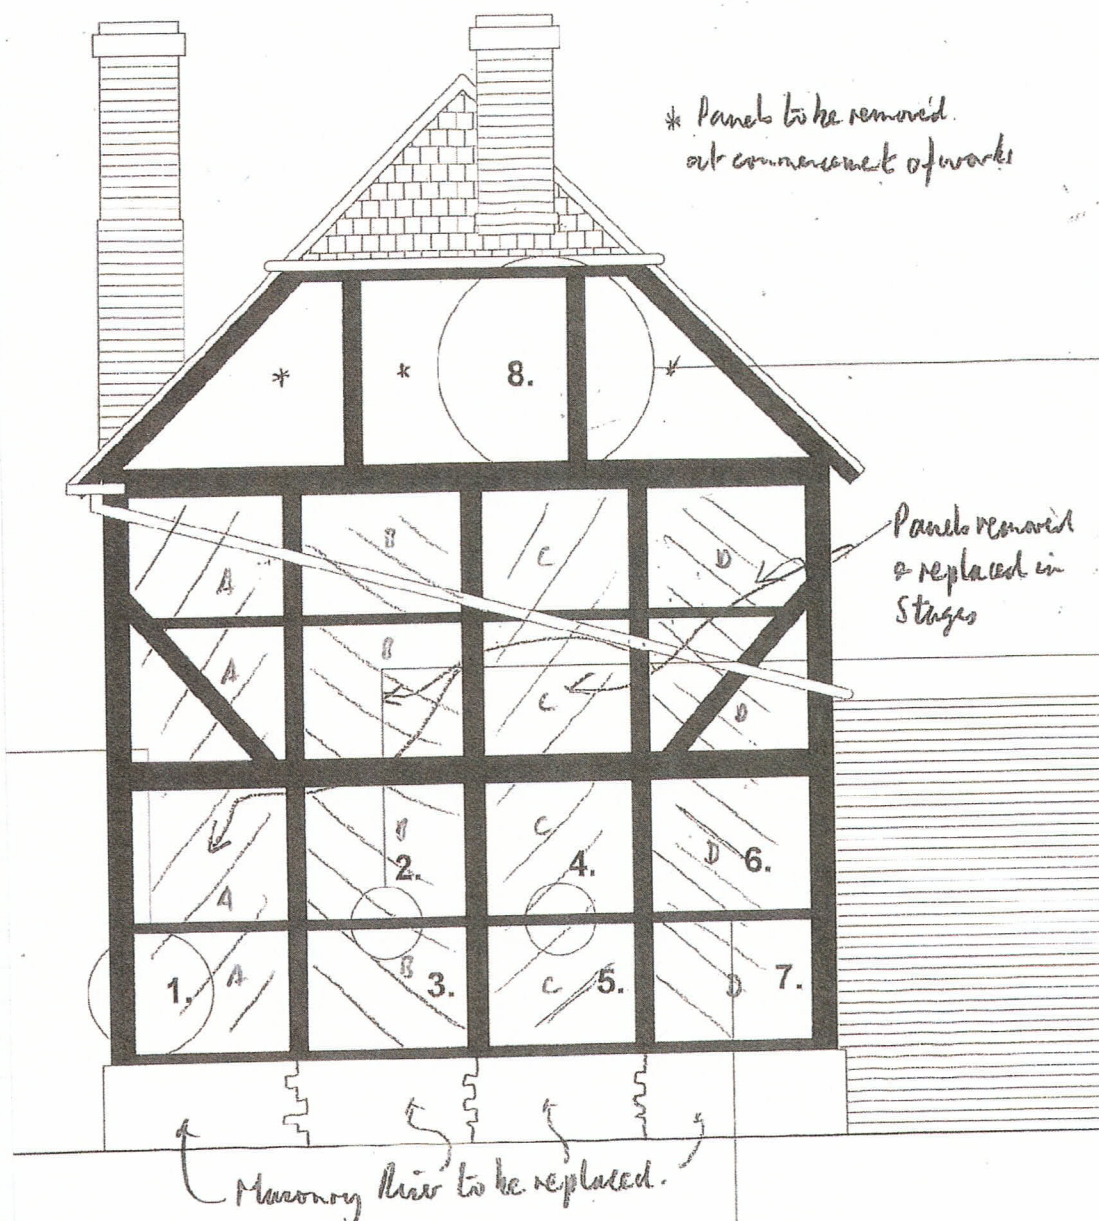 * Panels to be removed.
at commencement of works
* * 8. *
A B C D
Panels removed
& replaced in
Stages
A B C D
A B 2. C 4. D 6.
1. A B 3. C 5. D 7.
Masonry Plinth to be replaced.